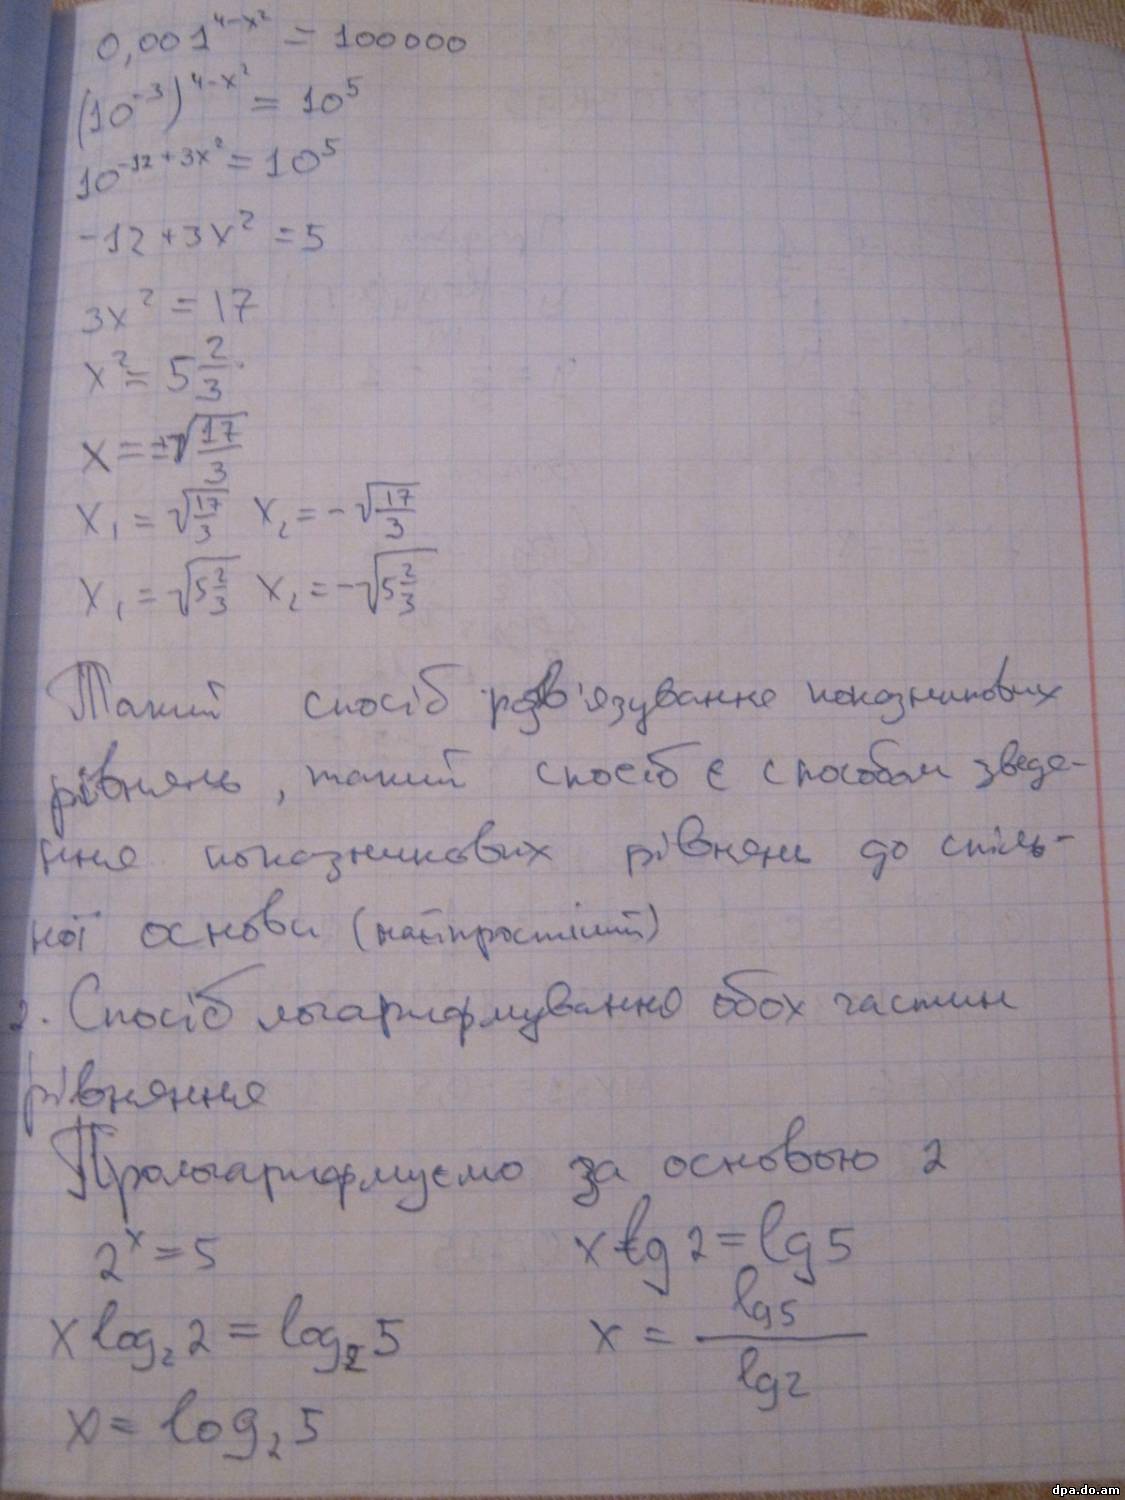 0,001^{4-x²} = 100000
(10^{-3})^{4-x²} = 10⁵
10^{-12+3x²} = 10⁵
-12+3x² = 5
3x² = 17
x² = 5 2/3
x = ±√(17/3)
x₁ = √(17/3) x₂ = -√(17/3)
x₁ = √(5 2/3) x₂ = -√(5 2/3)
Такий спосіб розв'язування показникових
рівнянь, такий спосіб є способом зведе-
ння показникових рівнянь до спіль-
ної основи (найпростіший)
2. Спосіб логарифмування обох частин
рівняння
Прологарифмуємо за основою 2
2ˣ = 5 x lg 2 = lg 5
x log₂ 2 = log₂ 5 x = lg 5 / lg 2
x = log₂ 5
dpa.do.am